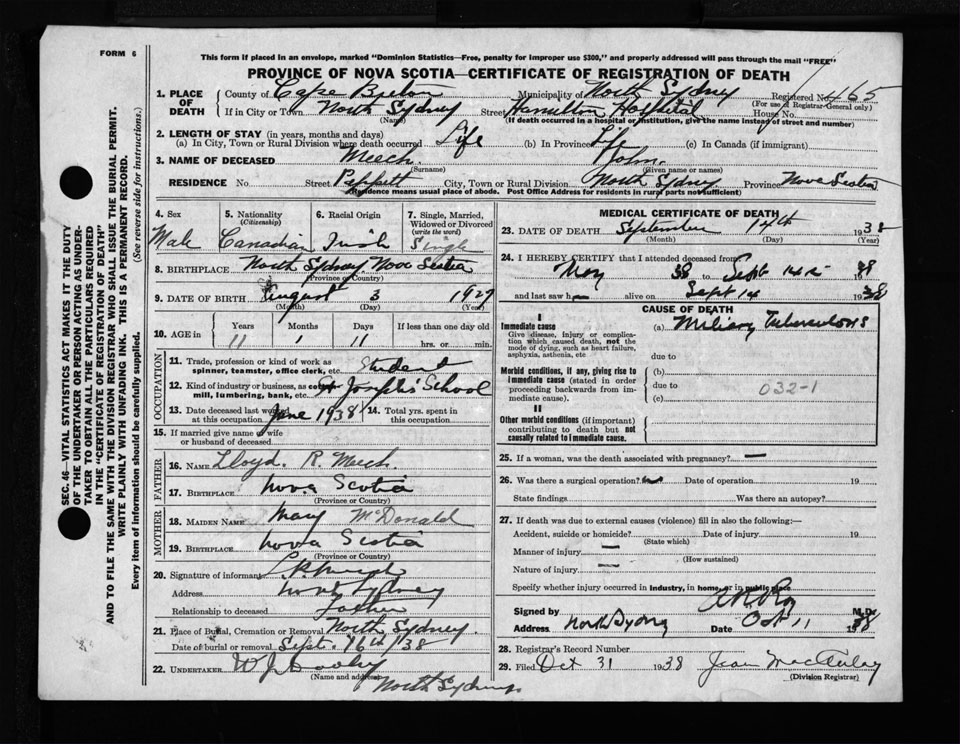 FORM 6
This form if placed in an envelope, marked "Dominion Statistics—Free, penalty for improper use $300," and properly addressed will pass through the mail "FREE"
PROVINCE OF NOVA SCOTIA—CERTIFICATE OF REGISTRATION OF DEATH
1. PLACE OF DEATH County of Cape Breton Municipality of North Sydney Registered No. 465
(For use of Registrar-General only)
If in City or Town North Sydney Street Hamilton Hospital House No.
(Name) (If death occurred in a hospital or institution, give the name instead of street and number)
2. LENGTH OF STAY (in years, months and days)
(a) In City, Town or Rural Division where death occurred Life (b) In Province Life (c) In Canada (if immigrant)
3. NAME OF DECEASED Meech. John.
(Surname) (Given name or names)
RESIDENCE No. Street City, Town or Rural Division North Sydney Province Nova Scotia
(Residence means usual place of abode. Post Office Address for residents in rural parts not sufficient)
4. Sex Male
5. Nationality (Citizenship) Canadian
6. Racial Origin Irish
7. Single, Married, Widowed or Divorced (write the word) Single
8. BIRTHPLACE North Sydney Nova Scotia
(Province or Country)
9. DATE OF BIRTH August 3 1927
(Month) (Day) (Year)
10. AGE in Years Months Days If less than one day old
11 1 11 hrs. or min.
OCCUPATION
11. Trade, profession or kind of work as spinner, teamster, office clerk, etc. Student
12. Kind of industry or business, as mill, lumbering, bank, etc. St Joseph's School
13. Date deceased last worked at this occupation June 1938 14. Total yrs. spent in this occupation
15. If married give name of wife or husband of deceased
FATHER
16. NAME Lloyd. R. Meech.
17. BIRTHPLACE Nova Scotia
(Province or Country)
MOTHER
18. MAIDEN NAME Mary McDonald
19. BIRTHPLACE Nova Scotia
(Province or Country)
20. Signature of informant
Address North Sydney
Relationship to deceased Father
21. Place of Burial, Cremation or Removal North Sydney.
Date of burial or removal Sept. 16th/38
22. UNDERTAKER W J Dooley
(Name and address) North Sydney
MEDICAL CERTIFICATE OF DEATH
23. DATE OF DEATH September 14th 1938
(Month) (Day) (Year)
24. I HEREBY CERTIFY that I attended deceased from:
May 38 to Sept 14 1938
and last saw h alive on Sept 14 1938
CAUSE OF DEATH
I
Immediate cause (a) Miliary Tuberculosis
Give disease, injury or complication which caused death, not the mode of dying, such as heart failure, asphyxia, asthenia, etc due to
Morbid conditions, if any, giving rise to immediate cause (stated in order proceeding backwards from immediate cause). (b)
due to 032-1
(c)
II
Other morbid conditions (if important) contributing to death but not causally related to immediate cause.
25. If a woman, was the death associated with pregnancy? —
26. Was there a surgical operation? no Date of operation 19
State findings Was there an autopsy?
27. If death was due to external causes (violence) fill in also the following:—
Accident, suicide or homicide? — Date of injury 19
(State which)
Manner of injury —
(How sustained)
Nature of injury —
Specify whether injury occurred in industry, in home, or in public place
Signed by M.D.
Address North Sydney Date Oct 11 1938
28. Registrar's Record Number
29. Filed Oct 31 1938 Jean MacAulay
(Division Registrar)
SEC. 46—VITAL STATISTICS ACT MAKES IT THE DUTY OF THE UNDERTAKER OR PERSON ACTING AS UNDERTAKER TO OBTAIN ALL THE PARTICULARS REQUIRED IN THE "CERTIFICATE OF REGISTRATION OF DEATH" AND TO FILE THE SAME WITH THE DIVISION REGISTRAR WHO SHALL ISSUE THE BURIAL PERMIT.
WRITE PLAINLY WITH UNFADING INK. THIS IS A PERMANENT RECORD.
Every item of information should be carefully supplied. (See reverse side for instructions.)